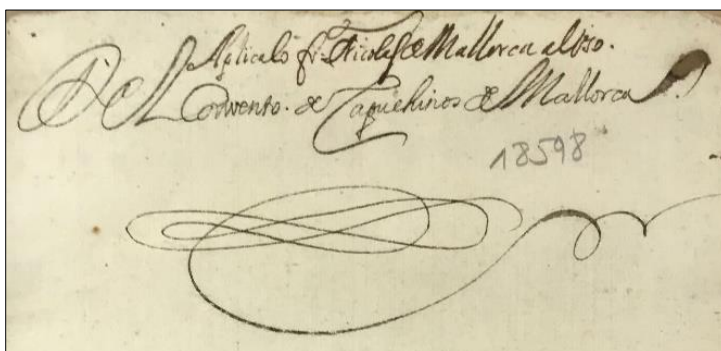 Aplicalo fr. Nicolas de Mallorca al uso.
Del Convento. de Capuchinos de Mallorca
18598